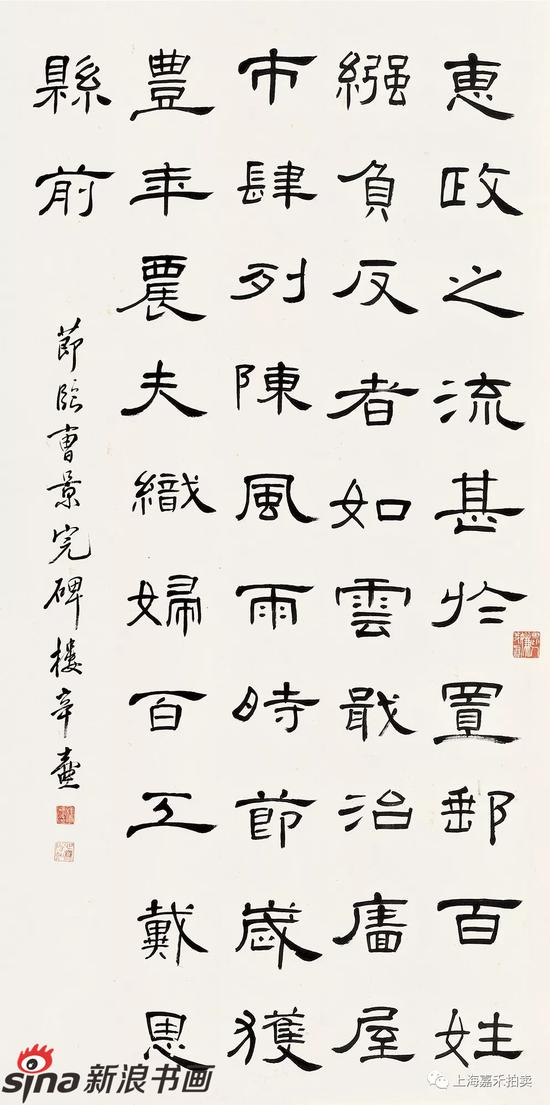 惠政之流甚於置郵百姓
繦負反者如雲戢治廧屋
市肆列陳風雨時節歲獲
豐年農夫織婦百工戴恩
縣前
節臨曹景完碑樓辛壷
sina新浪书画
上海嘉禾拍卖